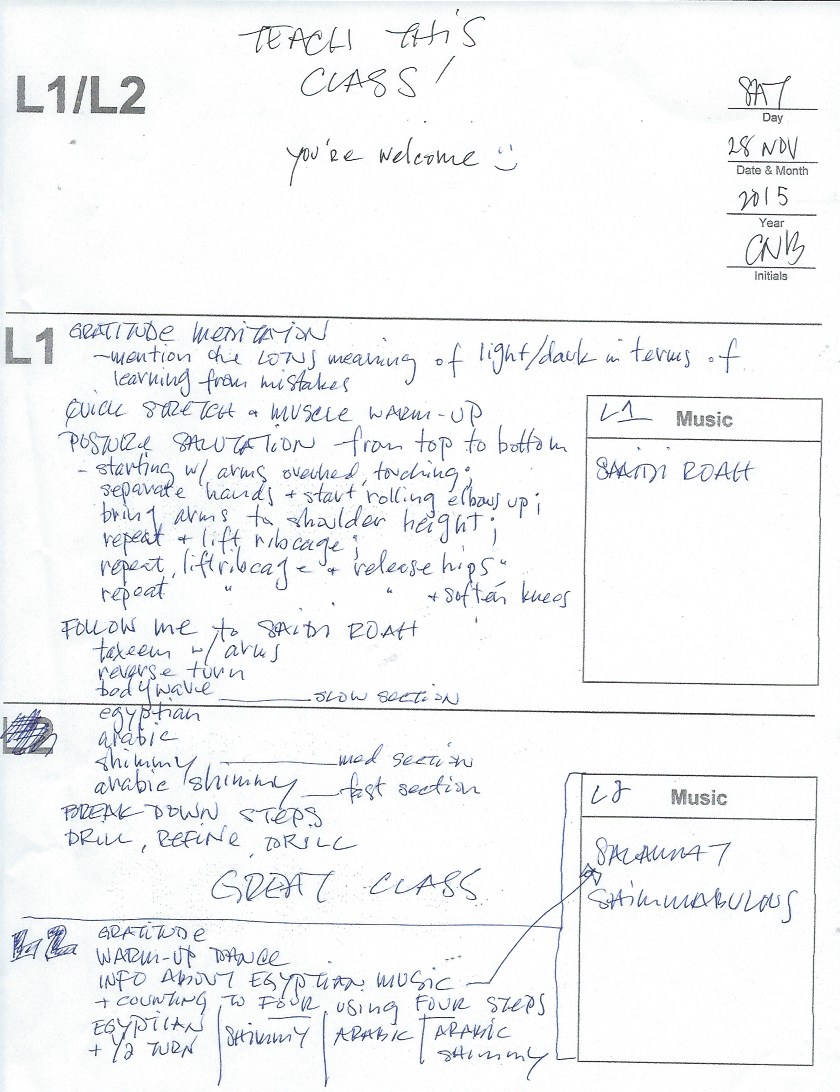 TEACH THIS
CLASS!
you're welcome :)
L1/L2
SAT
Day
28 NOV
Date & Month
2015
Year
CNB
Initials
L1
GRATITUDE MEDITATION
- mention the LONG meaning of light/dark in terms of
learning from mistakes
QUICK STRETCH + MUSCLE WARM-UP
POSTURE SALUTATION from top to bottom
- starting w/ arms overhed, touching;
separate hands + start rolling elbows up;
bring arms to shoulder height;
repeat + lift ribcage;
repeat, lift ribcage + release hips"
repeat " " + soften knees
FOLLOW me to SAIDI ROAH
taxeem w/ arms
reverse turn
bodywave ——— slow section
egyptian
arabic
shimmy ——— med section
arabic shimmy — fast section
BREAK DOWN STEPS
DRILL, REFINE, DRILL
GREAT CLASS
L1 Music
SAIDI ROAH
L2
GRATITUDE
WARM-UP DANCE
INFO ABOUT EGYPTIAN MUSIC
+ COUNTING TO FOUR using FOUR STEPS
EGYPTIAN + 1/2 TURN | SHIMMY | ARABIC | ARABIC SHIMMY
L2 Music
SALAMAT
SHIMMABULOUS